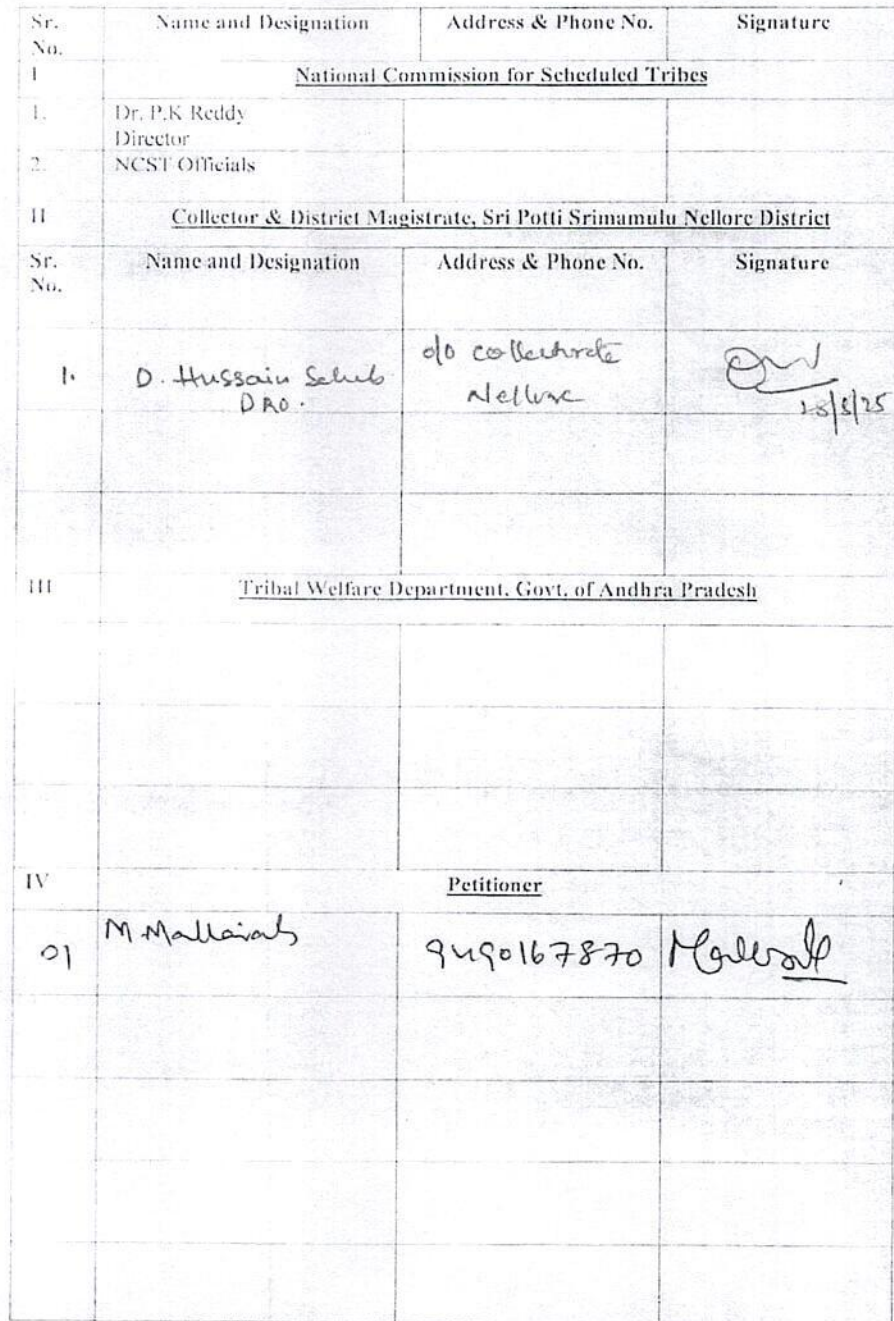 Sr. No. Name and Designation Address & Phone No. Signature
I National Commission for Scheduled Tribes
1. Dr. P.K Reddy
Director
2. NCST Officials
II Collector & District Magistrate, Sri Potti Srimamulu Nellore District
Sr. No. Name and Designation Address & Phone No. Signature
1. D. Hussain Saheb o/o collectorate
DRO. Nellore
/25
III Tribal Welfare Department, Govt. of Andhra Pradesh
IV Petitioner
01 M. Mallaiah 9490167870